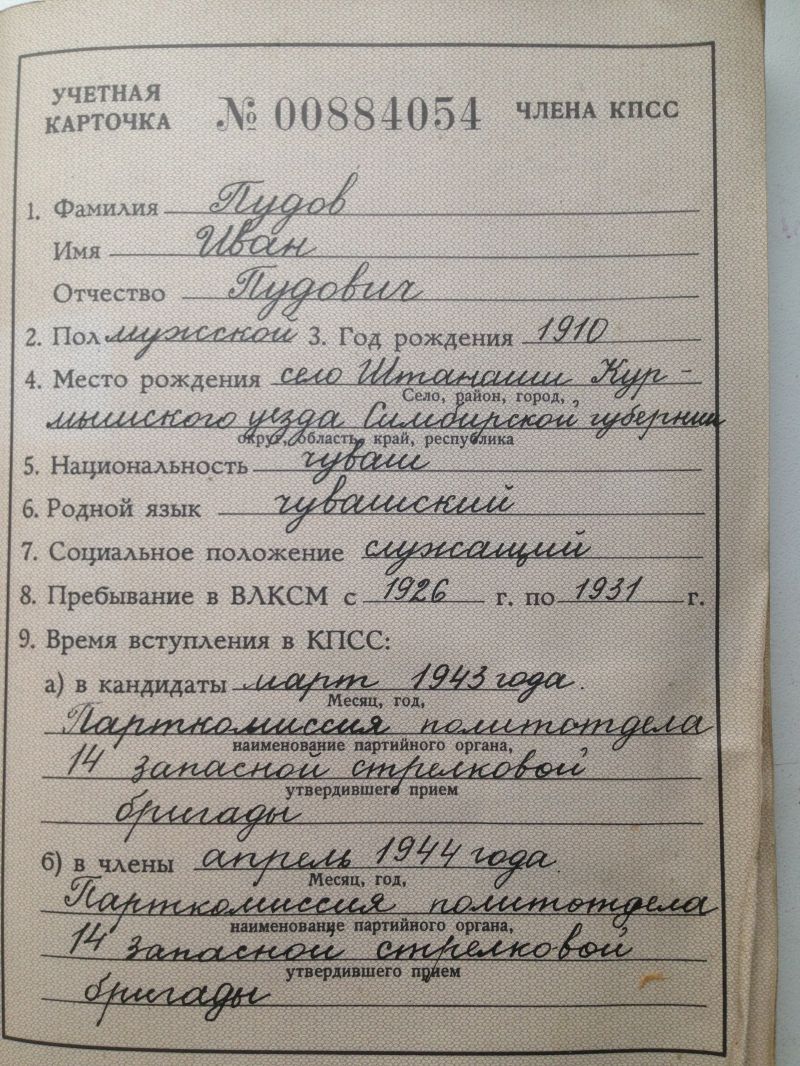 УЧЕТНАЯ КАРТОЧКА № 00884054 ЧЛЕНА КПСС
1. Фамилия Пудов
Имя Иван
Отчество Пудович
2. Пол мужской 3. Год рождения 1910
4. Место рождения село Штанаши Кур-
Село, район, город,
мышского уезда Симбирской губернии
округ, область, край, республика
5. Национальность чуваш
6. Родной язык чувашский
7. Социальное положение служащий
8. Пребывание в ВЛКСМ с 1926 г. по 1931 г.
9. Время вступления в КПСС:
а) в кандидаты март 1943 года.
Месяц, год,
Парткомиссия политотдела
наименование партийного органа,
14 запасной стрелковой
утвердившего прием
бригады
б) в члены апрель 1944 года.
Месяц, год,
Парткомиссия политотдела
наименование партийного органа,
14 запасной стрелковой
утвердившего прием
бригады